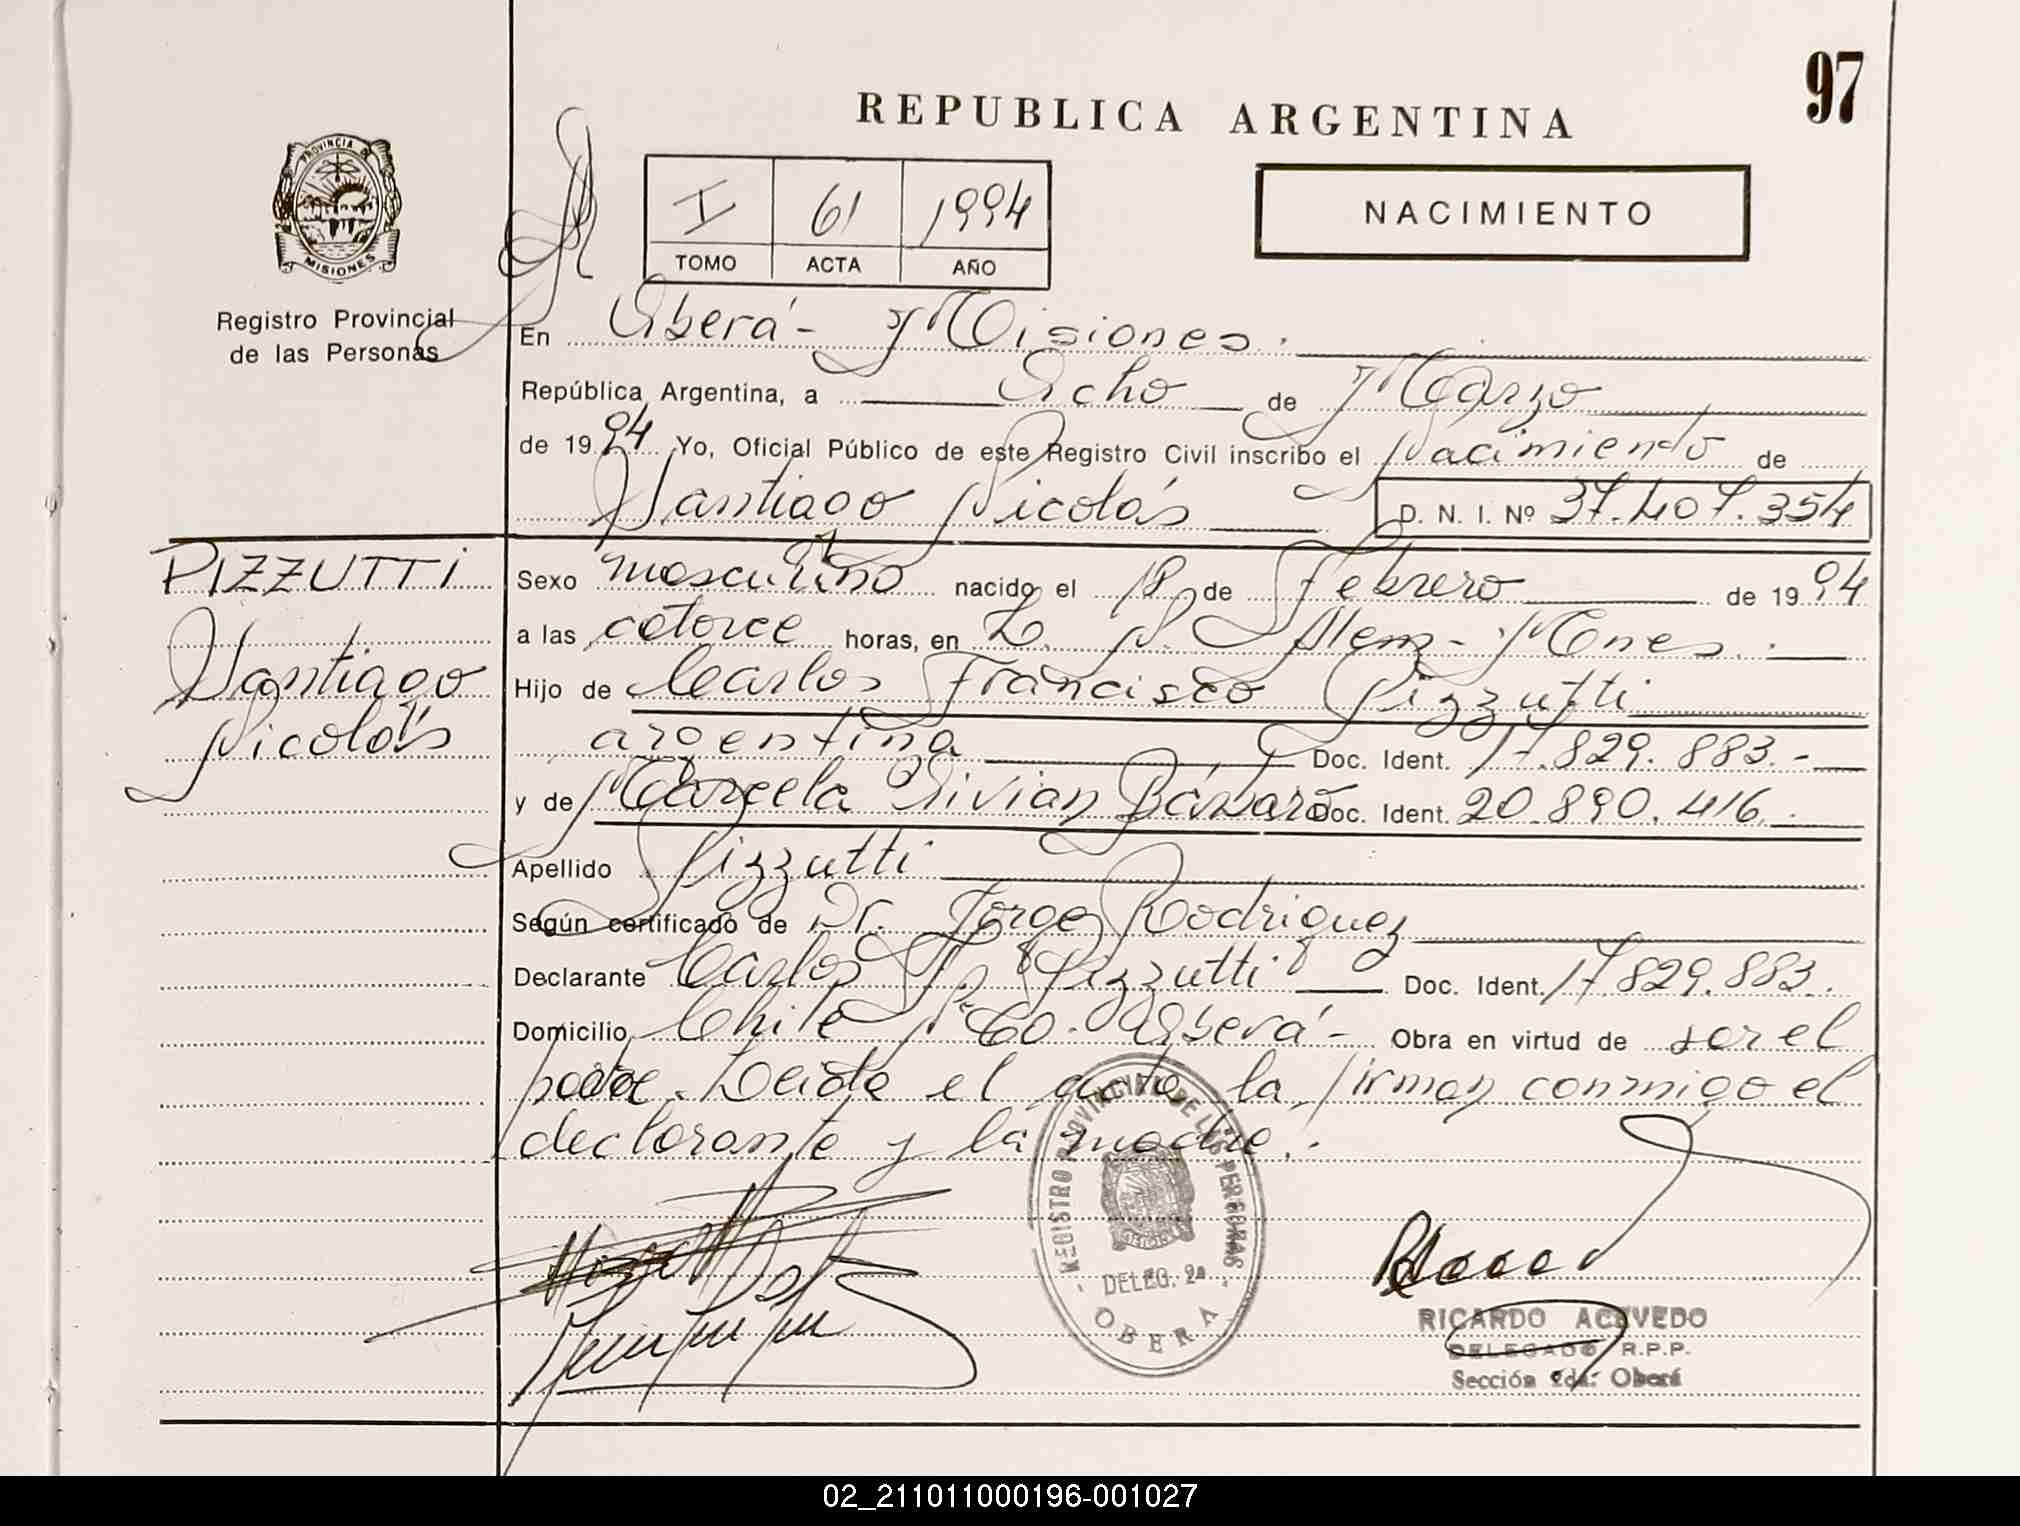 97
REPUBLICA ARGENTINA
PROVINCIA DE
MISIONES
Registro Provincial
de las Personas
I 61 1994
TOMO ACTA AÑO
NACIMIENTO
En Oberá - Misiones.
República Argentina, a Ocho de Marzo
de 1994 Yo, Oficial Público de este Registro Civil inscribo el Nacimiento de
Santiago Nicolás D. N. I. Nº 37.407.354
PIZZUTTI
Santiago
Nicolás
Sexo masculino nacido el 18 de Febrero de 1994
a las catorce horas, en L. N. Alem - Mones.
Hijo de Carlos Francisco Pizzutti
argentina Doc. Ident. 17.829.883.-
y de Marcela Vivian Doc. Ident. 20.890.416.
Apellido Pizzutti
Según certificado de Dr. Jorge Rodriguez
Declarante Carlos F. Pizzutti Doc. Ident. 17.829.883.
Domicilio Chile Nº Oberá - Obra en virtud de ser el
padre. Leida el acta, la firman conmigo el
declarante y la madre.-
REGISTRO PROVINCIAL DE LAS PERSONAS
DELEG. 2a
OBERA
RICARDO ACEVEDO
DELEGADO R.P.P.
Sección 2da. Oberá
02_211011000196-001027